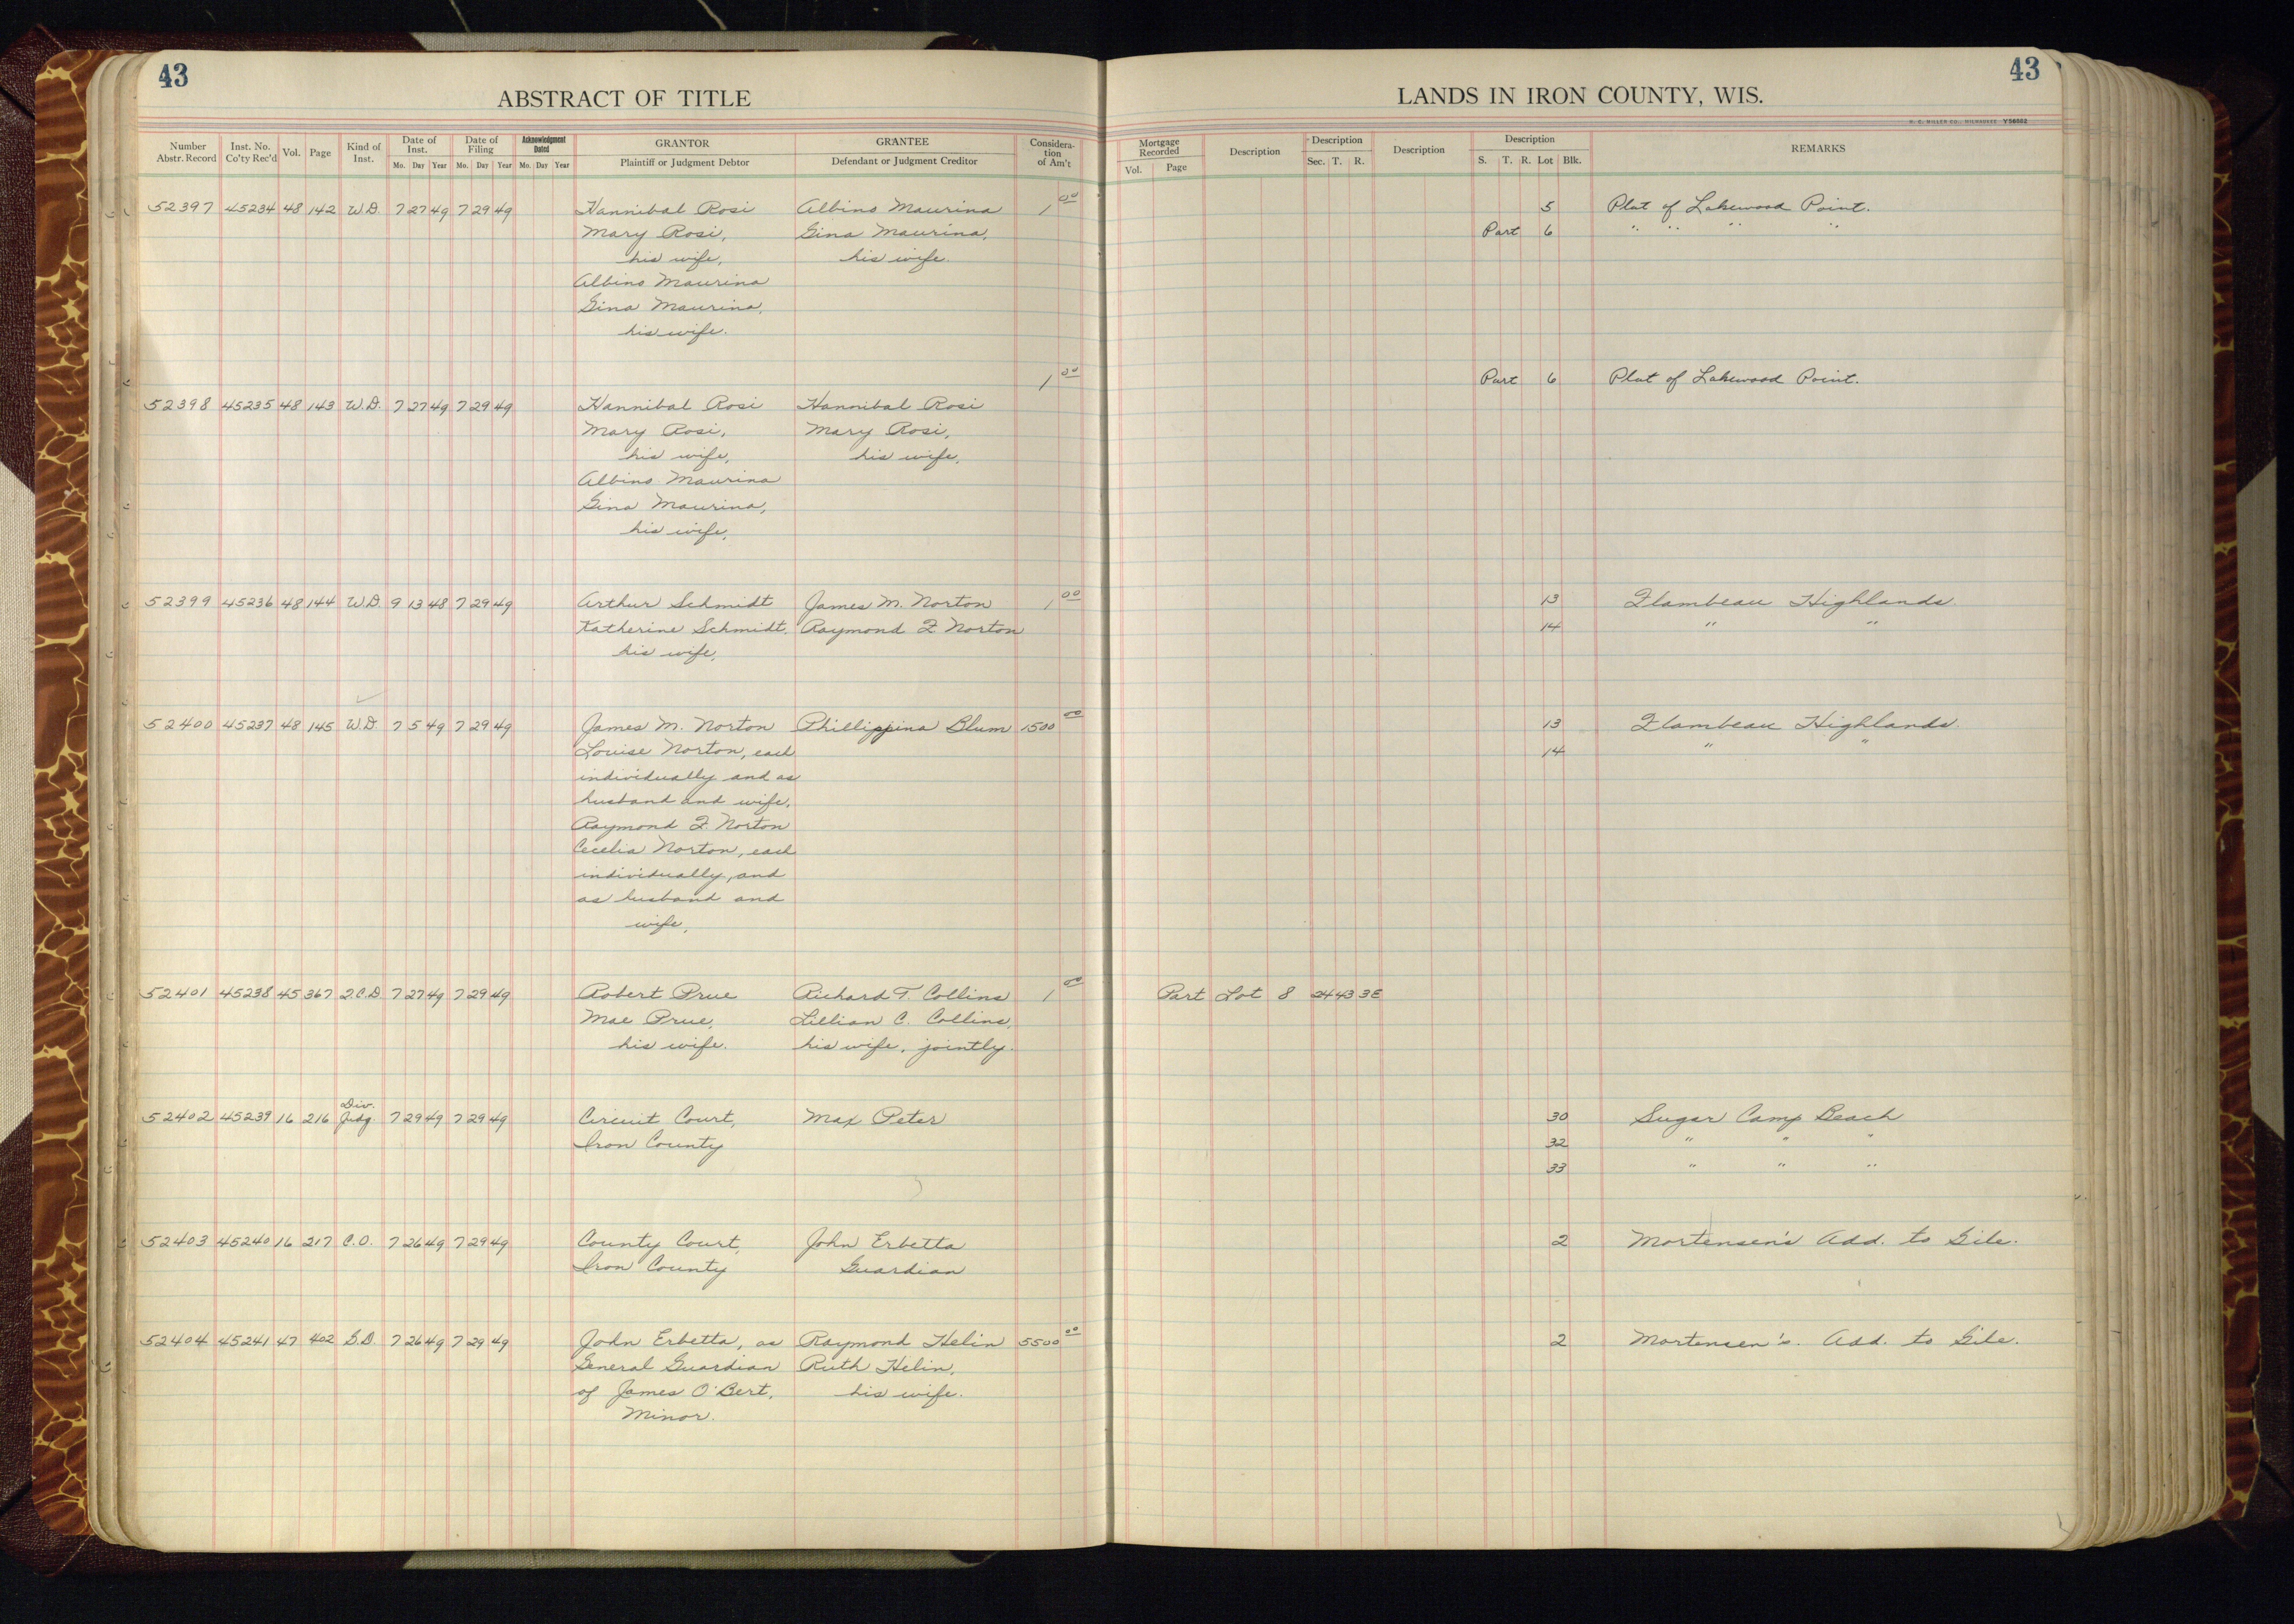 43
ABSTRACT OF TITLE
Number Abstr. Record Inst. No. Co'ty Rec'd Vol. Page Kind of Inst. Date of Inst. Mo. Day Year Date of Filing Mo. Day Year Acknowledgment Dated Mo. Day Year GRANTOR Plaintiff or Judgment Debtor GRANTEE Defendant or Judgment Creditor Considera-tion of Am't
52397 45234 48 142 W.D. 7 27 49 7 29 49 Hannibal Rosi Albino Maurina 1 00
Mary Rosi, Gina Maurina,
his wife, his wife.
Albino Maurina
Gina Maurina,
his wife.
1 00
52398 45235 48 143 W.D. 7 27 49 7 29 49 Hannibal Rosi Hannibal Rosi
Mary Rosi, Mary Rosi,
his wife, his wife,
Albino Maurina
Gina Maurina,
his wife,
52399 45236 48 144 W.D. 9 13 48 7 29 49 Arthur Schmidt James M. Norton 1 00
Katherine Schmidt, Raymond F. Norton
his wife,
52400 45237 48 145 W.D. 7 5 49 7 29 49 James M. Norton Phillippina Blum 1500 00
Louise Norton, each
individually and as
husband and wife,
Raymond F. Norton
Cecelia Norton, each
individually, and
as husband and
wife,
52401 45238 45 367 Q.C.D. 7 27 49 7 29 49 Robert Prue Richard T. Collins 1 00
Mae Prue, Lillian C. Collins,
his wife. his wife, jointly.
Div.
52402 45239 16 216 Judg. 7 29 49 7 29 49 Circuit Court, Max Peter
Iron County
52403 45240 16 217 C.O. 7 26 49 7 29 49 County Court, John Erbetta
Iron County Guardian
52404 45241 47 402 G.D. 7 26 49 7 29 49 John Erbetta, as Raymond Helin 5500 00
General Guardian Ruth Helin,
of James O'Bert, his wife.
Minor.
43
LANDS IN IRON COUNTY, WIS.
H. C. MILLER CO., MILWAUKEE Y56662
Mortgage Recorded Vol. Page Description Description Sec. T. R. Description Description S. T. R. Lot Blk. REMARKS
5 Plat of Lakewood Point.
Part 6 " " " "
Part 6 Plat of Lakewood Point.
13 Flambeau Highlands.
14 " "
13 Flambeau Highlands.
14 " "
Part Lot 8 24 43 3E
30 Sugar Camp Beach
32 " " "
33 " " "
2 Mortensen's Add. to Gile.
2 Mortensen's. Add. to Gile.